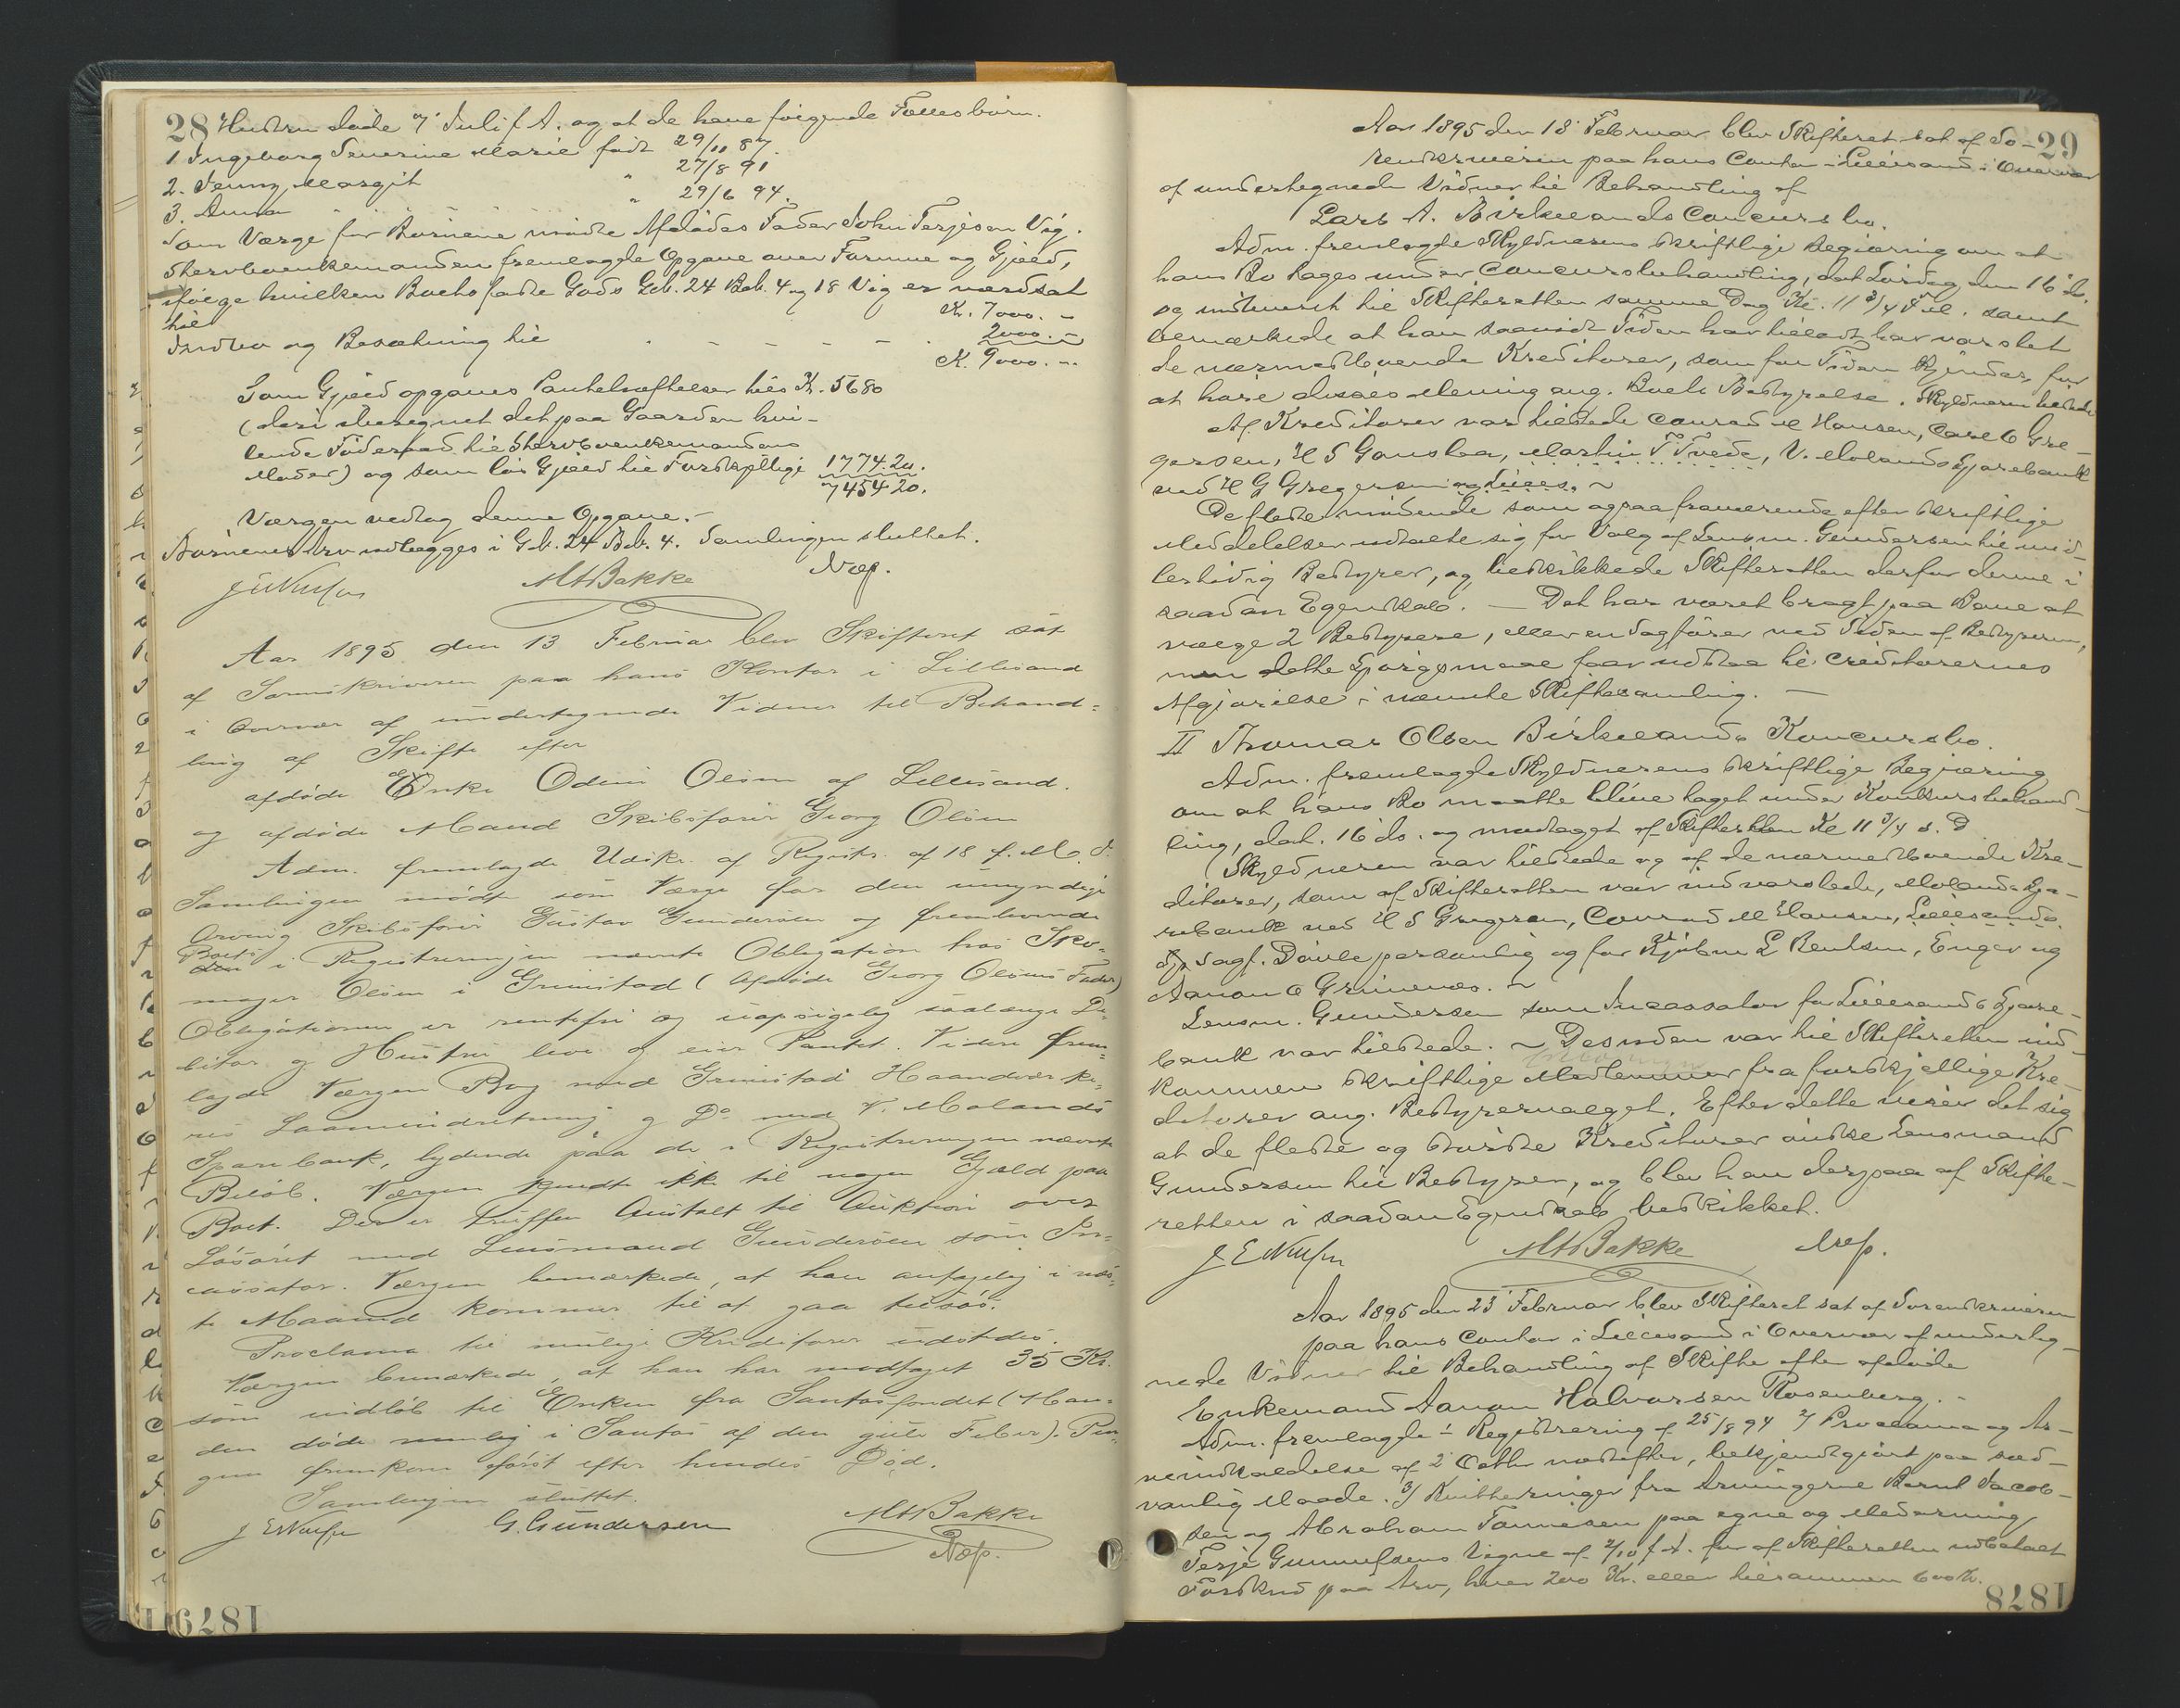 28 Hustru døde 7' Juli f. A. og at de have følgende Fællesbørn.
1 Ingeborg Severine Marie født 29/11 87.
2. Jenny Margit " 27/8 91
3. Anna " 29/6 94.
Som Værge for Børnene mødte Afdødes Fader John Terjesen Vig.
Stervboenkemanden fremlagde Opgave over Formue og Gjæld,
ifølge hvilken Boets faste Gods Gb. 24 Bb. 4 og 18 Vig er værdsat
til Kr. 7000. -
Indbo og Besætning til - - - - - 2000. -
K. 9000. -
Som Gjæld opgaves Pantehæftelser til Kr. 5680
(deri iberegnet det paa Gaarden hvi-
lende Føderaad til Stervboenkemandens
Moder) og som løs Gjæld til Forskjellige 1774.20.
7454 20.
Værgen vedtog denne Opgave. -
Børnenes Arv udlægges i Gb. 24 Bb. 4. Samlingen sluttet.
MABakke Næp.
Aar 1895 den 13 Februar blev Skifteret sat
af Sorenskriveren paa hans Kontor i Lillesand
i Overvær af undertegnede Vidner til Behand=
ling af Skifte efter
afdøde Enke Odine Olsen af Lillesand.
og afdøde Mand Skibsfører Georg Olsen
Adm. fremlagde Udskr. af Registr. af 18 f. M. I
Samlingen mødte som Værge for den umyndige
Arving Skibsfører Gustav Gundersen og fremlevende
Boets
den i Registreringen nævnte Obligation hos Sko-
mager Olsen i Grimstad (Afdøde Georg Olsens Fader)
Obligationen er rentefri og uopsigelig saalænge De-
bitor og Hustru leve og eier Pantet. Videre frem-
lagde Værgen Bog med Grimstad Haandværke-
res Laaneindretning og Do med V. Molands
Sparebank, lydende paa de i Registreringen nævnte
Beløb. Værgen kjendte ikke til nogen Gjæld paa
Boet. Der er truffen Anstalt til Auktion over
Løsøret med Lensmand Gundersen som In-
cassator. Værgen bemærkede, at han antagelig i næs-
te Maaned kommer til at gaa tilsøs.
Proclama til mulige Kreditorer udstedes.
Værgen bemærkede, at han har modtaget 35 Kr.
som indløb til Enken fra Santosfondet (Man-
den døde nemlig i Santos af den gule Feber). Pen-
gene fremkom først efter hendes Død.
Samlingen sluttet.
G. Gundersen MABakke
Næp.
1879
29
Aar 1895 den 18' Februar blev Skifteret sat af So-
renskriveren paa hans Contor i Lillesand i Overvær
af undertegnede Vidner til Behandling af
Lars A. Birkelands Concursbo.
Adm. fremlagde Skyldnerens skriftlige Begjæring om at
hans Bo tages under Concursbehandling, dat Lørdag den 16 ds.
og indleveret til Skifteretten samme Dag Kl. 11 3/4 Fm. samt
bemærkede at han saavidt Tiden har tilladt har varslet
de nærmestboende Kreditorer, som for Tiden kjendes, for
at høre disses Mening ang. Boets Bestyrelse. Skyldneren tilstede
Af Kreditorer var tilstede Conrad M Hansen, Carl O Gre-
gersen, H S Gauslaa, Martin T Tvede, V. Molands Sparebank
ved H G Gregersen og Lilles. ~
De fleste mødende som ogsaa fraværende efter skriftlige
Meddelelser udtalte sig for Valg af Lensm. Gundersen til mid-
lertidig Bestyrer, og beskikkede Skifteretten derfor denne i
saadan Egenskab. — Det har været bragt paa Bane at
vælge 2 Bestyrere, eller en Sagfører ved Siden af Bestyreren,
men dette Spørgsmaal faar udstaa til Creditorernes
Afgjørelse i nævnte Skiftesamling. —
II Thomas Olsen Birkelands Koncursbo.
Adm. fremlagde Skyldnerens skriftlige Begjæring
om at hans Bo maatte blive taget under Konkursbehand-
ling, dat. 16 ds. og modtaget af Skifteretten Kl 11 3/4 s. D
Skyldneren var tilstede og af de nærmestboende Kre-
ditorer, som af Skifteretten var indvarslede, Molands Spa-
rebank ved H S Gregersen, Conrad M Hansen, Lillesands
Sp Sagf. Døvle personlig og for Kjøbm L Bentsen, Enger og
Aanon O Grimenes. ~
Lensm. Gundersen som Incassator for Lillesands Spare-
bank var tilstede. ~ Desuden var til Skifteretten ind-
kommen skriftlige Meddelelser fra forskjellige Kre-
ditorer ang. Bestyrervalget. Efter dette viser det sig
at de fleste og største Kreditorer ønske Lensmand
Gundersen til Bestyrer, og blev han derpaa af Skifte-
retten i saadan Egenskab beskikket.
MABakke Næp.
Aar 1895 den 23' Februar blev Skifteret sat af Sorenskriveren
paa hans Contor i Lillesand i Overvær af underteg-
nede Vidner til Behandling af Skifte efter afdøde
Enkemand Aanon Halvorsen Rosenberg. -
Adm. fremlagde 1 Registrering af 25/8 94 2/ Proclama og Ar-
veindkaldelse af 2' Octbr næstefter, bekjendtgjort paa sæd-
vanlig Maade. 3/ Kvitteringer fra Arvingerne Bernt Jacob-
sen og Abraham Tønnesen paa egne og Medarving
Terje Gunnufsens Vegne af 2/10 f A. for af Skifteretten udbetalt
Forskud paa Arv, hver 200 Kr. eller tilsammen 600 Kr.
1878